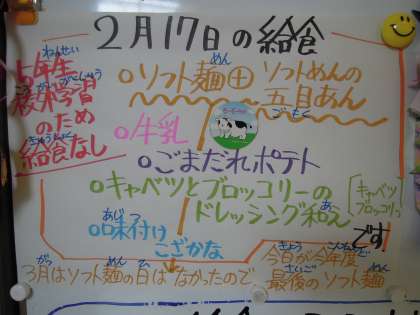 2月17日の給食
5年生
校外学習
のため
給食なし
ねんせい
こうがいがくしゅう
きゅうしょく
ソフト麺
めん
ソフトめんの
五目あん
ごもく
牛乳
ごまだれポテト
キャベツとブロッコリーの
ドレッシング和え
あ
キャベツ
ブロッコリー
味付け
あじつ
こざかな
です
3月はソフト麺の日はなかったので
がつ
めん
ひ
今日が今年度
きょう
こんねんど
最後のソフト麺
さいご
めん